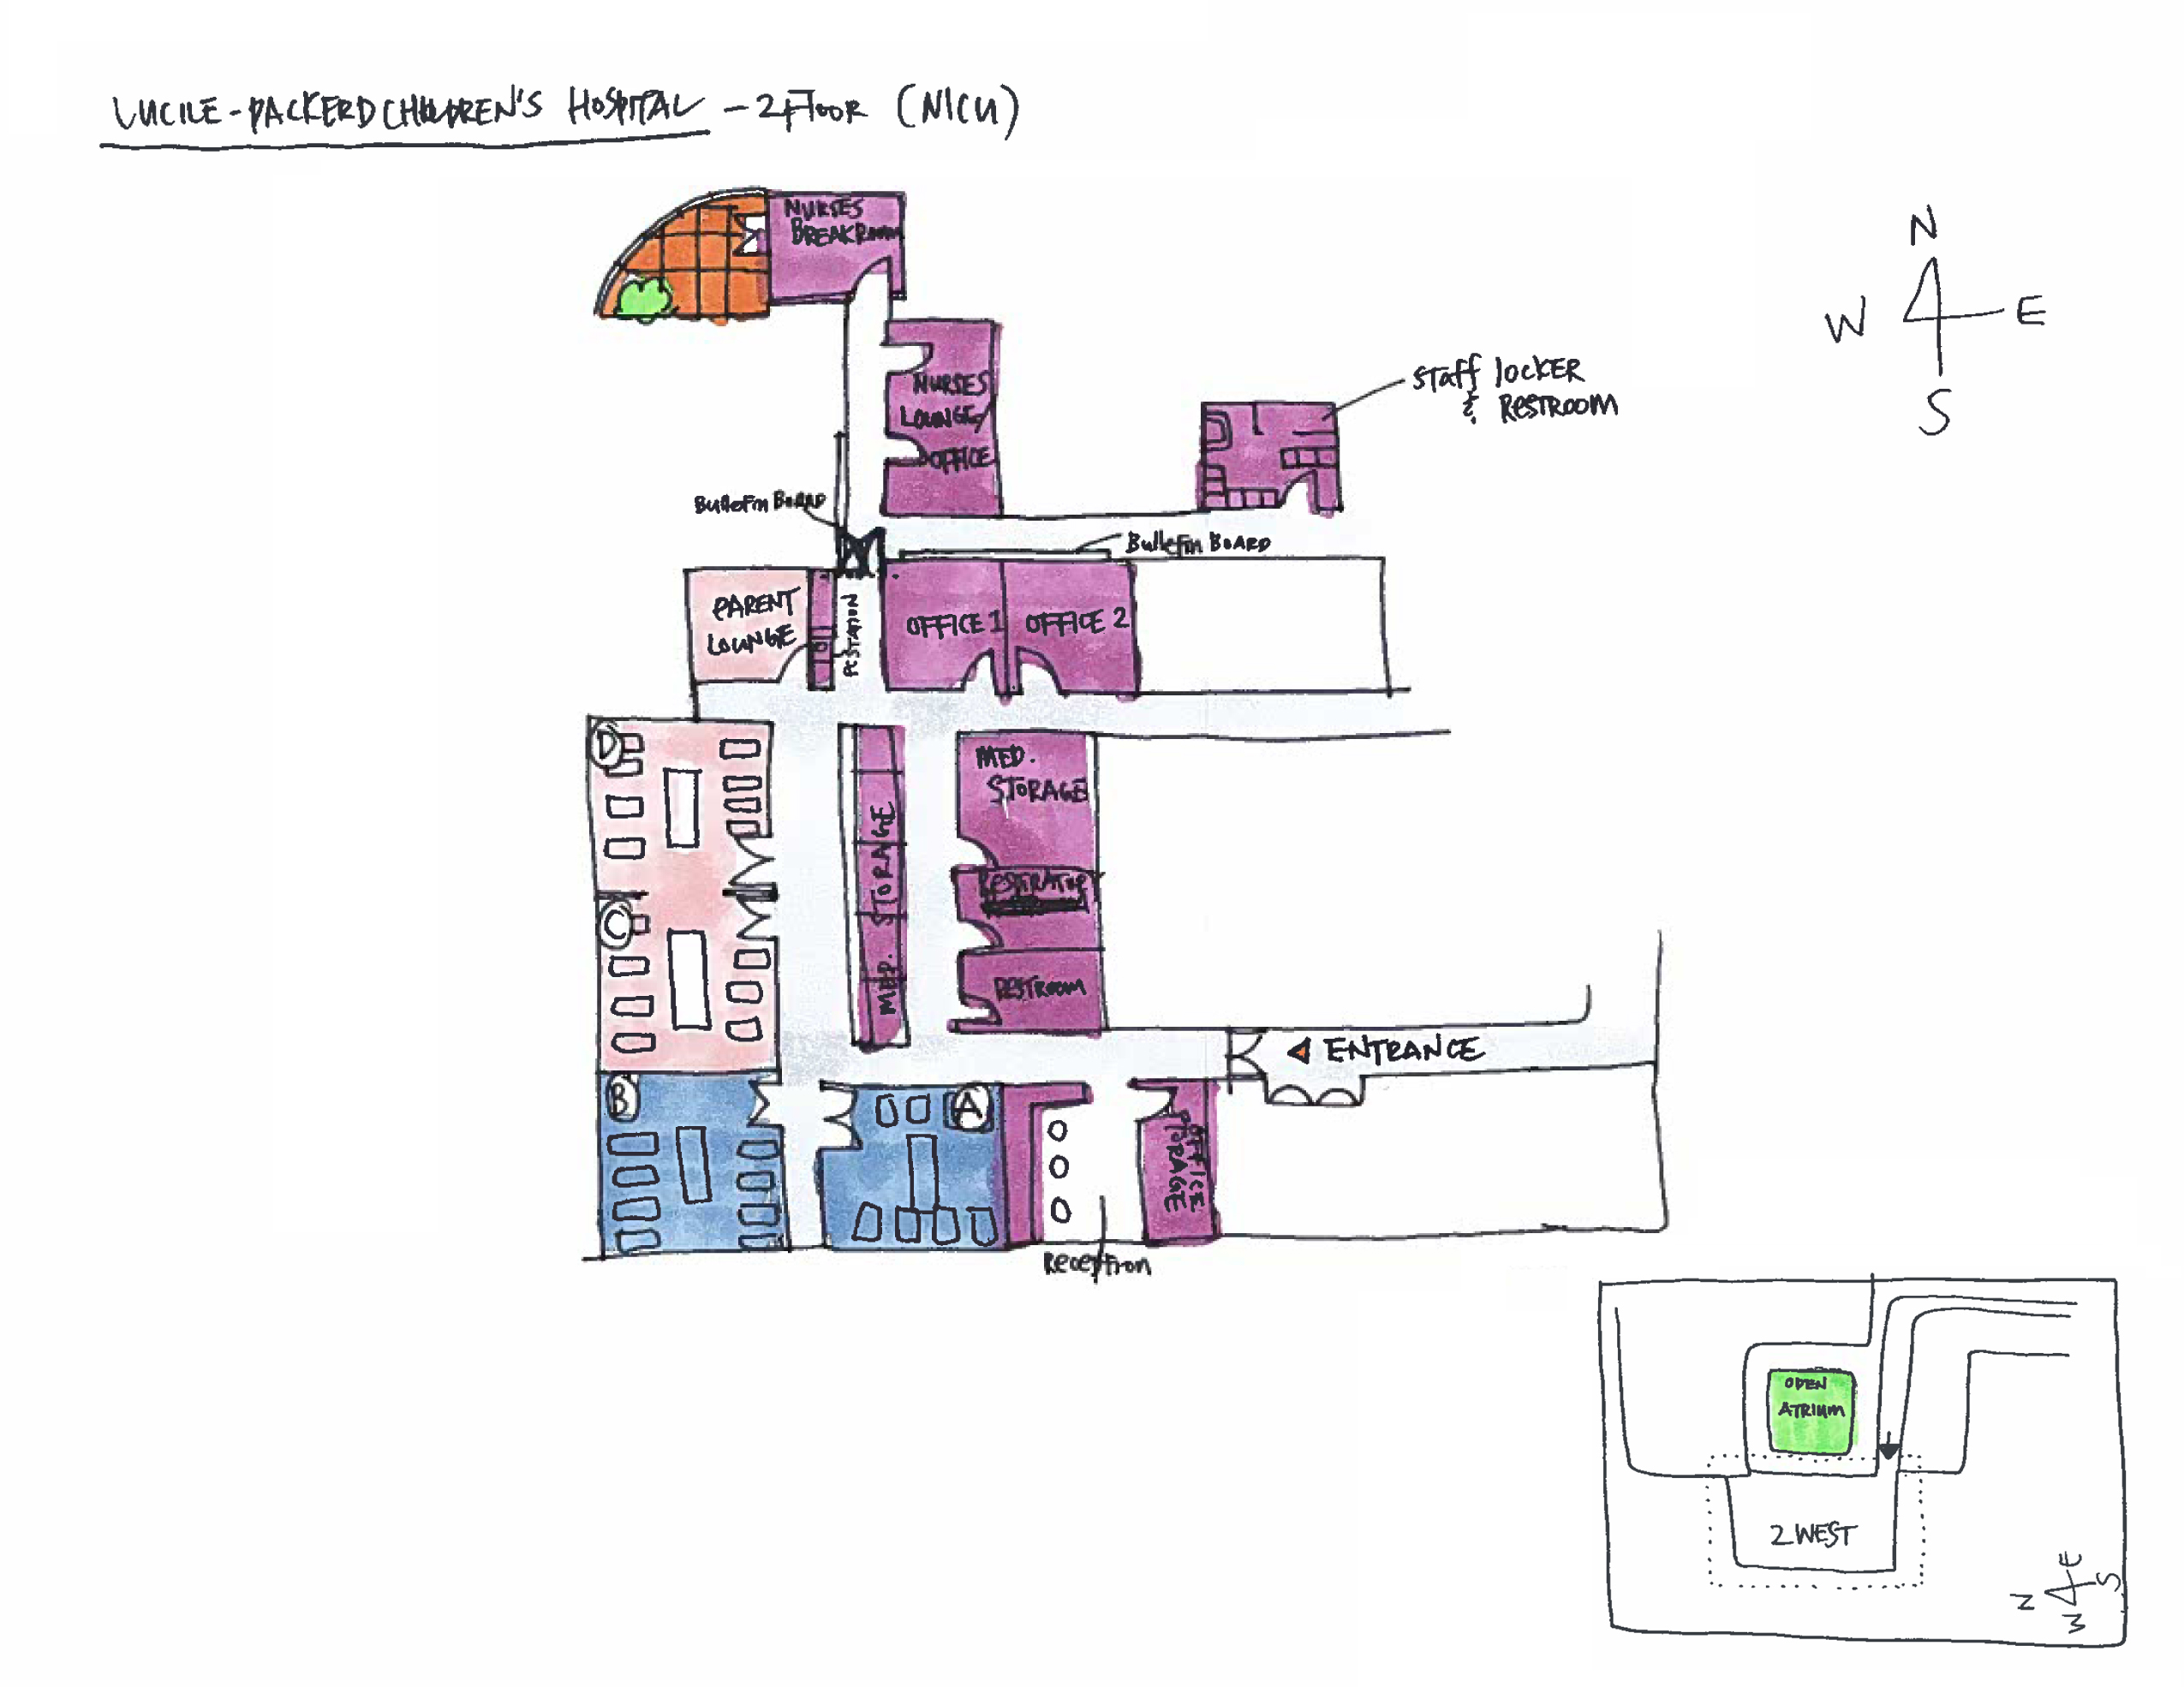 LUCILE-PACKERD CHILDREN'S HOSPITAL - 2 Floor (NICU)
NURSES
BREAKROOM
N
W E
S
NURSES
LOUNGE/
OFFICE
Staff locker
& RESTROOM
Bulletin Board
Bulletin BOARD
PARENT
LOUNGE
OFFICE 1
OFFICE 2
D
MED.
STORAGE
MED. STORAGE
C
RESTROOM
ENTRANCE
B
A
OFFICE
STORAGE
Reception
OPEN
ATRIUM
2 WEST
N E
W S